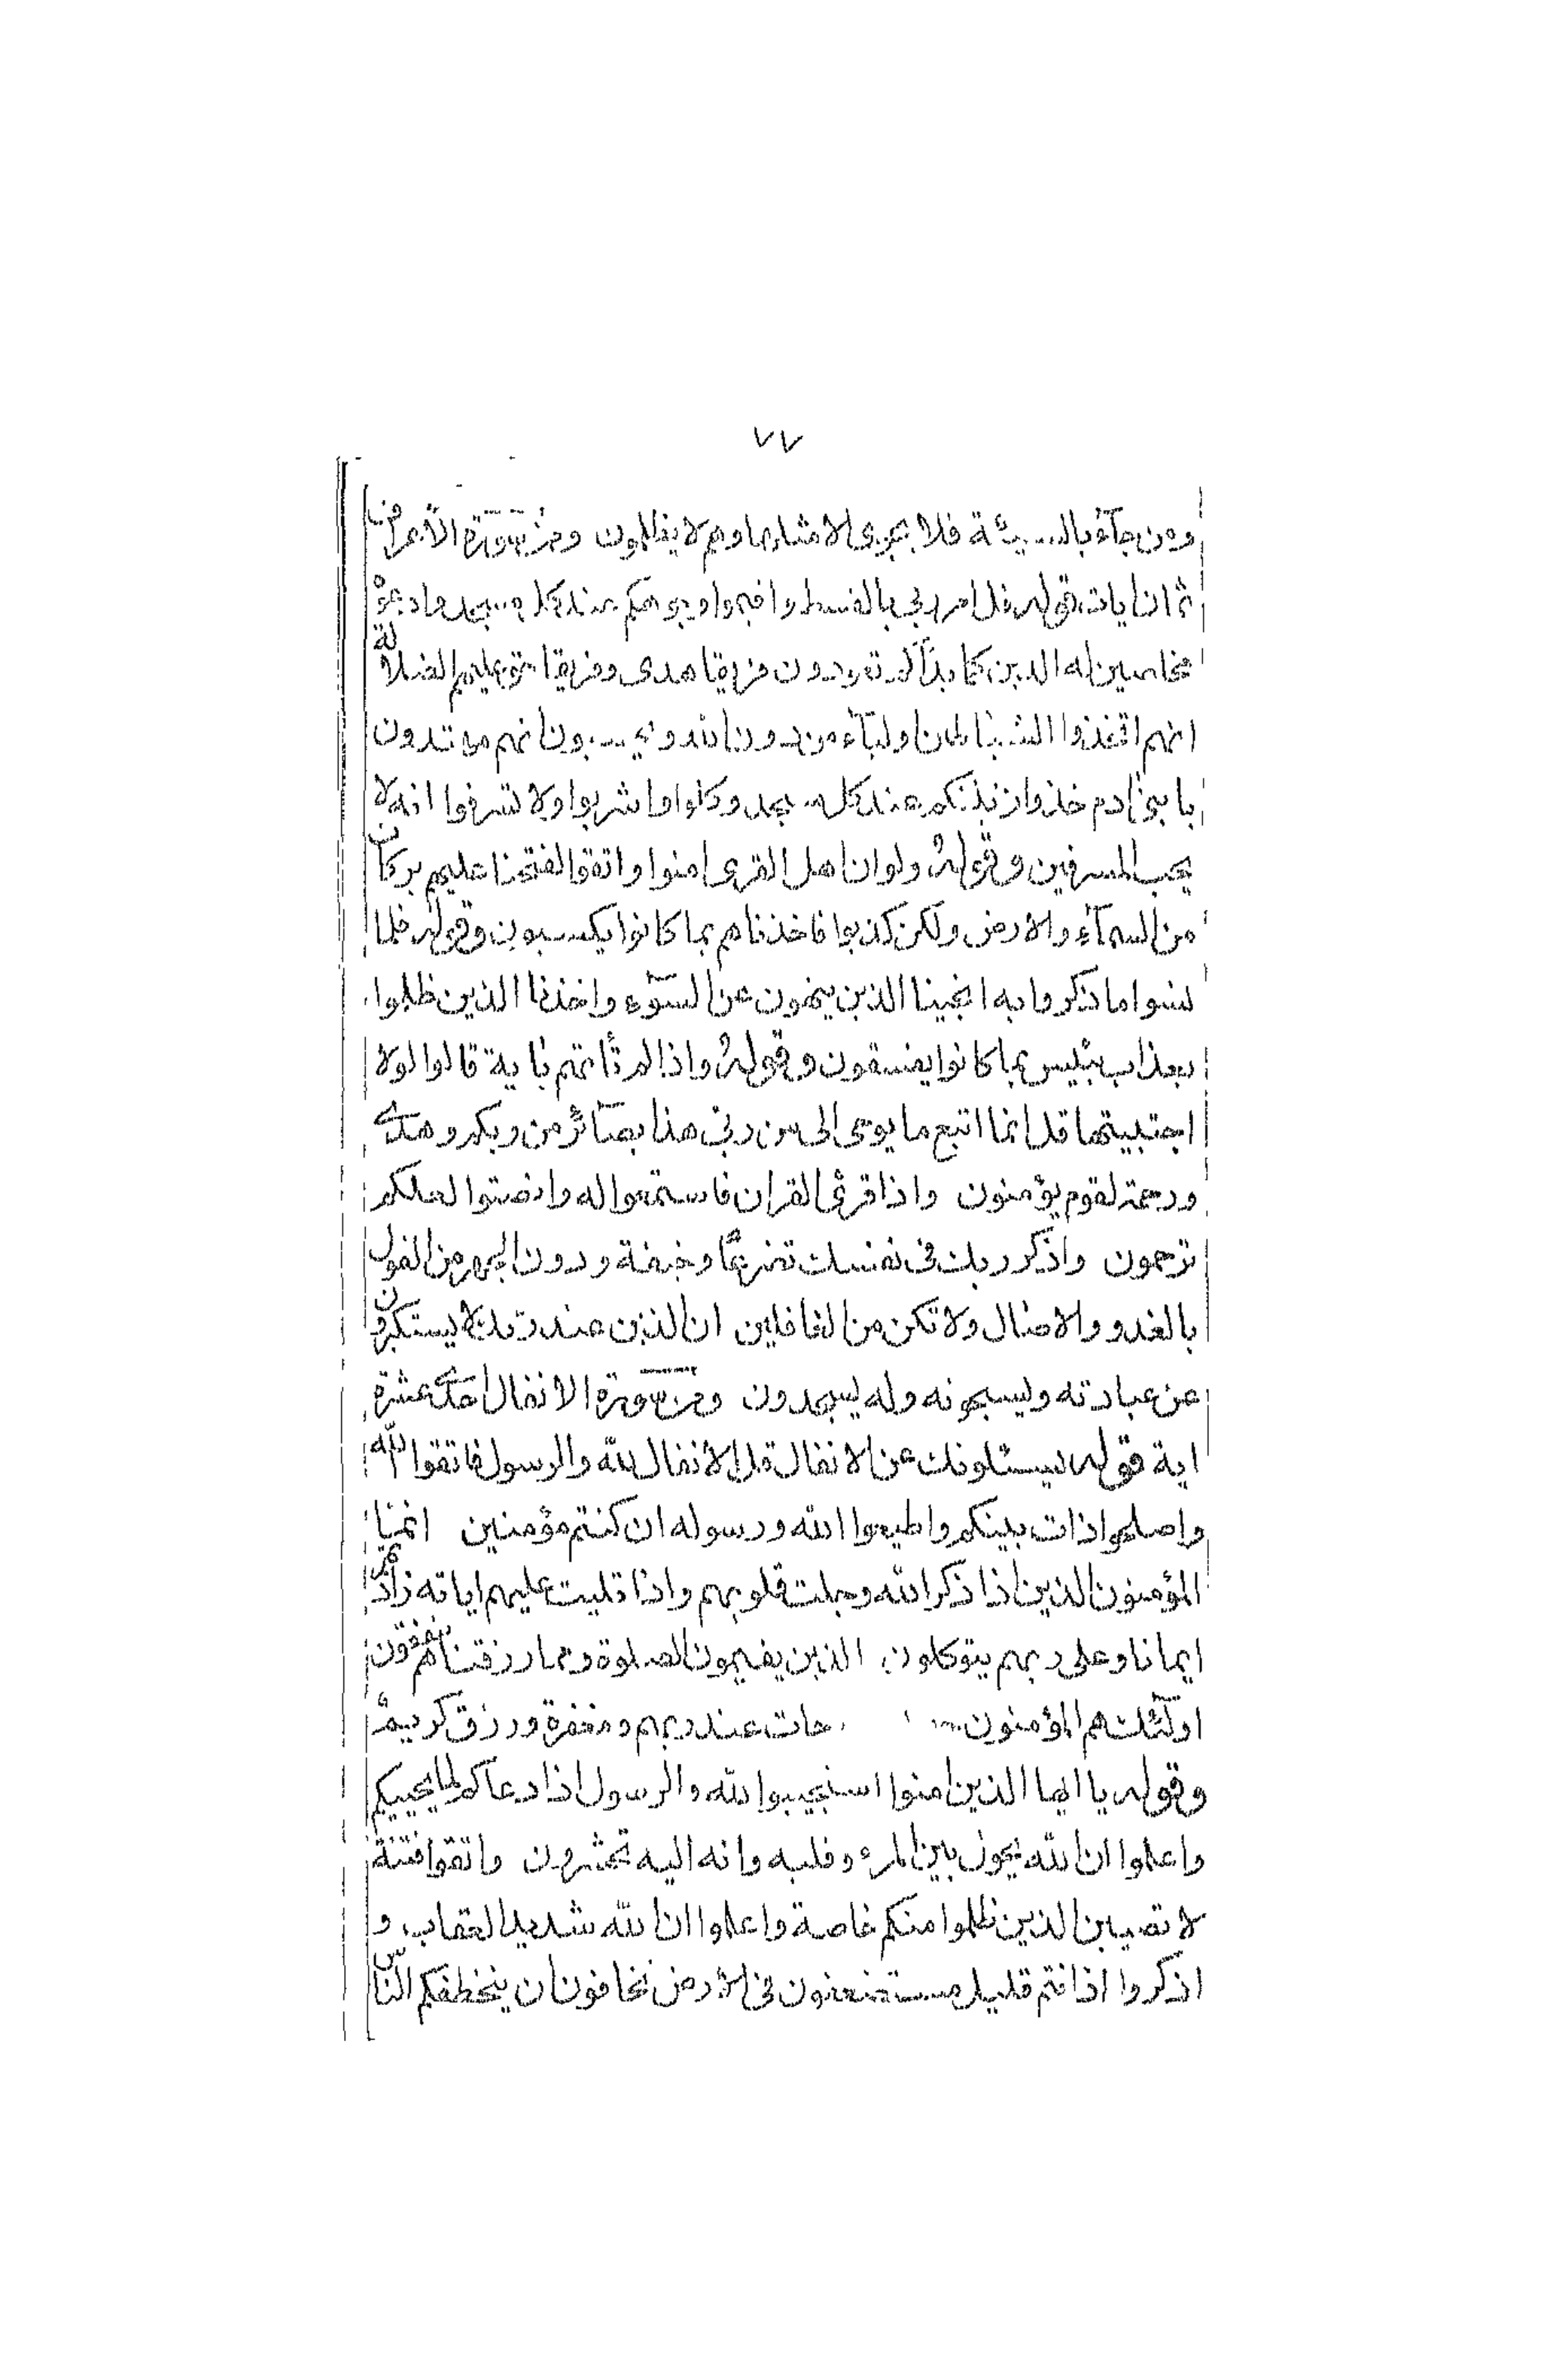 ٧٧
ومن جآء بالسيئة فلا يجزى الا مثلها وهم لا يظلمون ومن سورة الاعراف
ثمان ايات قوله قل امر ربي بالقسط واقيموا وجوهكم عند كل مسجد وادعوه
مخلصين له الدين كما بدأكم تعودون فريقا هدى وفريقا حق عليهم الضلالة
انهم اتخذوا الشياطين اوليآء من دون الله ويحسبون انهم مهتدون
يا بني ادم خذوا زينتكم عند كل مسجد وكلوا واشربوا ولا تسرفوا انه لا
يحب المسرفين وقوله ولو ان اهل القرى امنوا واتقوا لفتحنا عليهم بركات
من السمآء والارض ولكن كذبوا فاخذناهم بما كانوا يكسبون وقوله فلما
نسوا ما ذكروا به انجينا الذين ينهون عن السوء واخذنا الذين ظلموا
بعذاب بئيس بما كانوا يفسقون وقوله واذا لم تأتهم باية قالوا لولا
اجتبيتها قل انما اتبع ما يوحى الى من ربي هذا بصآئر من ربكم وهدى
ورحمة لقوم يؤمنون واذا قرئ القران فاستمعوا له وانصتوا لعلكم
ترحمون واذكر ربك في نفسك تضرعًا وخيفة ودون الجهر من القول
بالغدو والاصال ولا تكن من الغافلين ان الذين عند ربك لا يستكبرون
عن عبادته ويسبحونه وله يسجدون ومن سورة الانفال احدى عشرة
اية قوله يسئلونك عن الانفال قل الانفال لله والرسول فاتقوا الله
واصلحوا ذات بينكم واطيعوا الله ورسوله ان كنتم مؤمنين انما
المؤمنون الذين اذا ذكر الله وجلت قلوبهم واذا تليت عليهم اياته زادتهم
ايمانا وعلى ربهم يتوكلون الذين يقيمون الصلوة ومما رزقناهم ينفقون
اولئك هم المؤمنون عند ربهم ومغفرة ورزق كريم
وقوله يا ايها الذين امنوا استجيبوا لله والرسول اذا دعاكم لما يحييكم
واعلموا ان الله يحول بين المرء وقلبه وانه اليه تحشرون واتقوا فتنة
لا تصيبن الذين ظلموا منكم خاصة واعلموا ان الله شديد العقاب و
اذكروا اذ انتم قليل مستضعفون في الارض تخافون ان يتخطفكم الناس